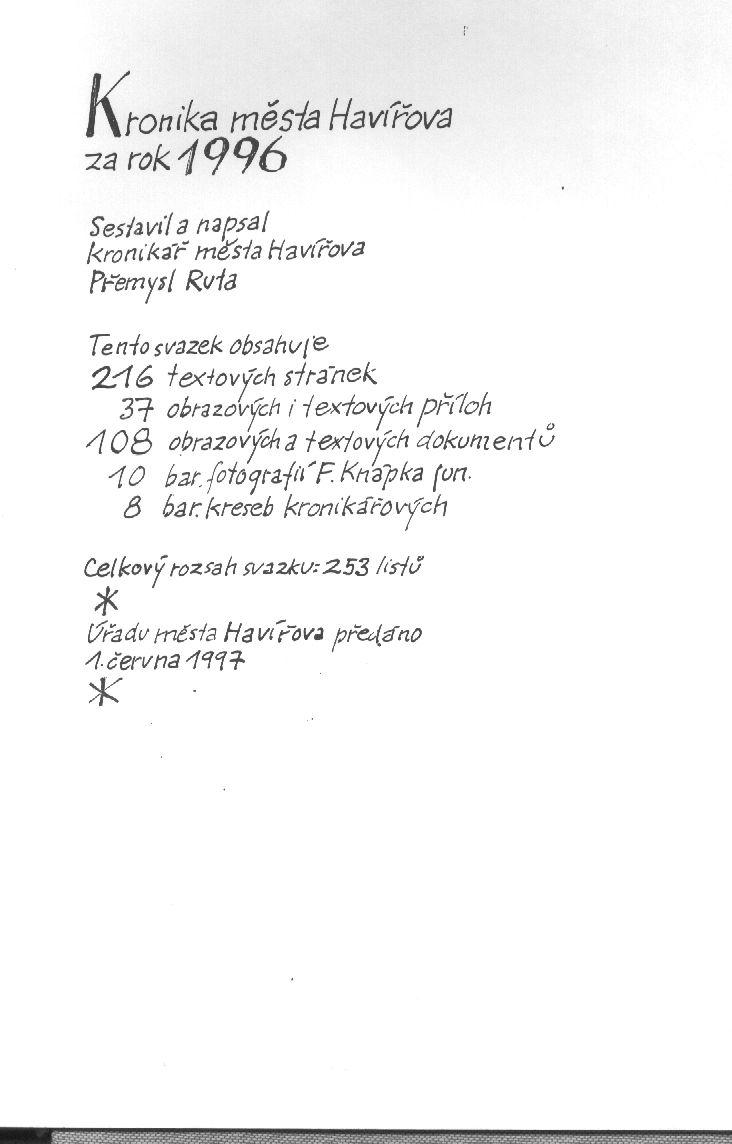 Kronika města Havířova
za rok 1996
Sestavil a napsal
kronikář města Havířova
Přemysl Ruta
Tento svazek obsahuje
216 textových stránek
37 obrazových i textových příloh
108 obrazových a textových dokumentů
10 bar. fotografií F. Knápka jun.
8 bar. kreseb kronikářových
Celkový rozsah svazku: 253 listů
*
Úřadu města Havířova předáno
1. června 1997
*